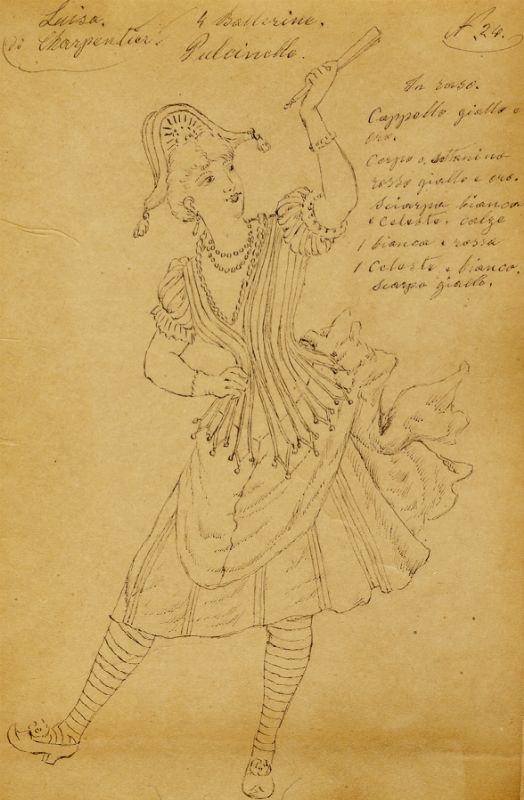 Luisa.
di Charpentier.
4 Ballerine.
Pulcinelle.
N. 24.
In raso.
Cappello giallo e
oro.
Corpo e sottanino
rosso giallo e oro.
Sciarpa bianca
e celeste. calze
1 bianca e rossa
1 celeste e bianco.
scarpe gialle.